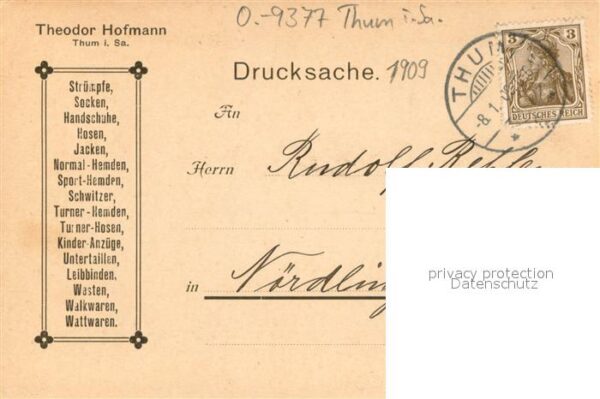 O.-9377 Thum i. Sa.
Theodor Hofmann
Thum i. Sa.
Drucksache. 1909
THUM
-8.1.
3 3
DEUTSCHES REICH
Strümpfe,
Socken,
Handschuhe,
Hosen,
Jacken,
Normal-Hemden,
Sport-Hemden,
Schwitzer,
Turner-Hemden,
Turner-Hosen,
Kinder-Anzüge,
Untertaillen,
Leibbinden.
Westen,
Walkwaren,
Wattwaren.
An
Herrn Rudolf
in Nördlin
privacy protection
Datenschutz